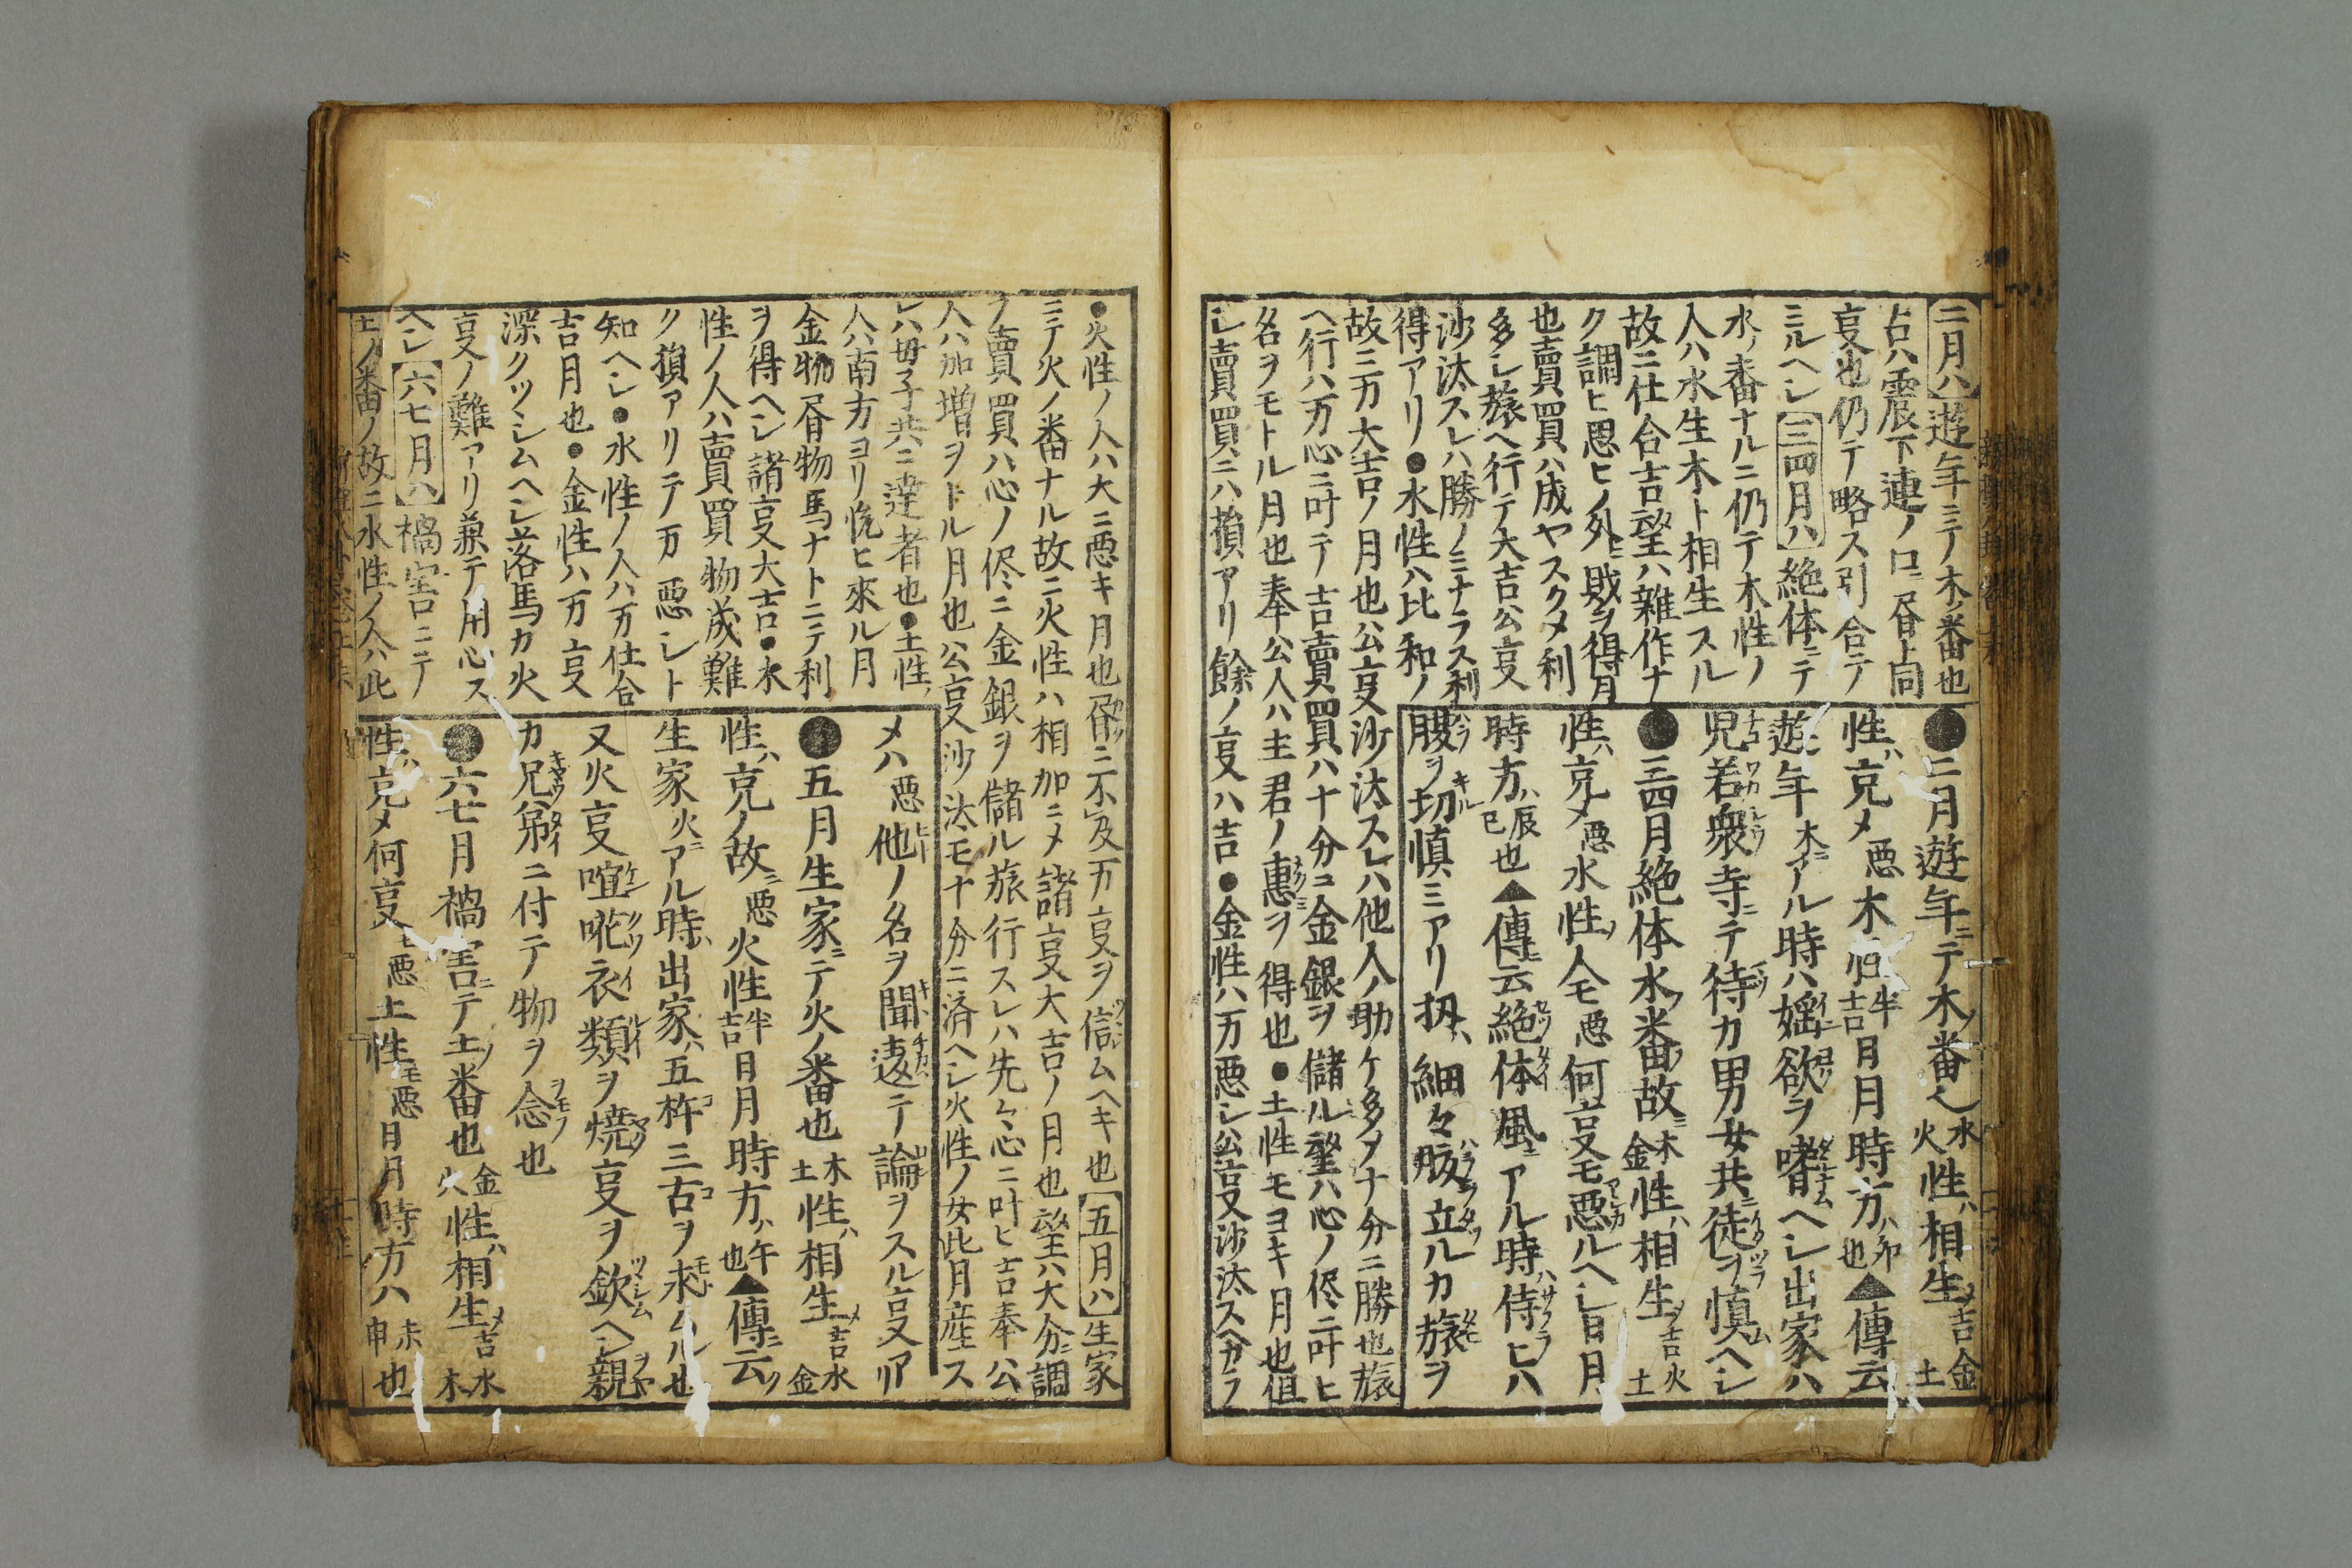 二月ハ遊年ニテノ木ノ番也
占ハ震下連ノ口ニ昏上同
叓也仍テ略ス引合テ
ミルヘシ三四月ハ絶体ニテ
水ノ番ナルニ仍テ木性ノ
人ハ水生木ト相生スル
故ニ仕合吉望ハ雑作ナ
ク調ヒ思ヒノ外ニ敗ヲ得月
也賣買ハ成ヤスクメ利
多シ旅ヘ行テ大吉公叓
沙汰スレハ勝ノミナラス利
得アリ●水性ハ比和ノ
故ニ万大吉ノ月也公叓沙汰スレハ他人ノ助ケ多ヲナ分ニ勝也旅
ヘ行ハ万心ニ叶テ吉賣買ハ十分ニ金銀ヲ儲ル望ハ心ノ侭ニ叶ヒ
名ヲモトル月也奉公人ハ主君ノ惠ヲ得也●土性モヨキ月也但
シ賣買ニハ損アリ餘ノ叓ハ吉●金性ハ万悪シ公叓沙汰スヘカラ
●二月遊年ニテ木ノ番也水火性ハ相生メ吉金土
性ハ克メ悪木性半吉日月時方ハ卯也▲傳云
遊年木ニアル時ハ婬欲ヲ嗜ヘシ出家ハ
児若衆寺ニテ待カ男女共ニ徒ヲ慎ヘシ
●三四月絶体水ノ番故ニ木金性ハ相生メ吉火土
性ハ克メ悪水性ノ人モ悪何叓モ悪ルヘシ日月
時方ハ辰巳也▲傳ニ云絶体風ニアル時ハ侍ヒハ
腹ヲ切慎ミアリ扨ハ細々腹立ルカ旅ヲ
●火性ノ人ハ大ニ悪キ月也昏ニ不及万叓ヲ信ムヘキ也五月ハ生家
ニテ火ノ番ナル故ニ火性ハ相加ニメ諸叓大吉ノ月也望ハ大分ニ調
フ賣買ハ心ノ侭ニ金銀ヲ儲ル旅行スレハ先々心ニ叶ヒ吉奉公
人ハ加増ヲトル月也公叓沙汰モ十分ニ済ヘシ火性ノ女此月産ス
レハ母子共ニ達者也●土性ノ
人ハ南方ヨリ悦ヒ來ル月
金物昏物馬ナトニテ利
ヲ得ヘシ諸叓大吉●木
性ノ人ハ賣買物成難
ク損アリテ万悪シト
知ヘシ●水性ノ人ハ万仕合
吉月也●金性ハ万叓
深クツシムヘシ落馬カ火
叓ノ難アリ兼テ用心ス
ヘシ六七月ハ禍害ニテ
土ノ番ノ故ニ水性ノ人ハ此
メハ悪他ノ名ヲ聞違テ論ヲスル叓アリ
●五月生家ニテ火ノ番也木土性ハ相生メ吉水金
性ハ克ノ故ニ悪火性半吉日月時方ハ午也▲傳ニ云
生家火ニアル時ハ出家ハ五杵三古ヲ求ムル也
又火叓喧𠵅衣類ヲ焼叓ヲ欽ヘシ親
カ兄弟ニ付テ物ヲ念也
●六七月禍害ニテ土ノ番也金火性ハ相生メ吉水木
性ハ克メ何叓モ悪土性モ悪日月時方ハ未申也